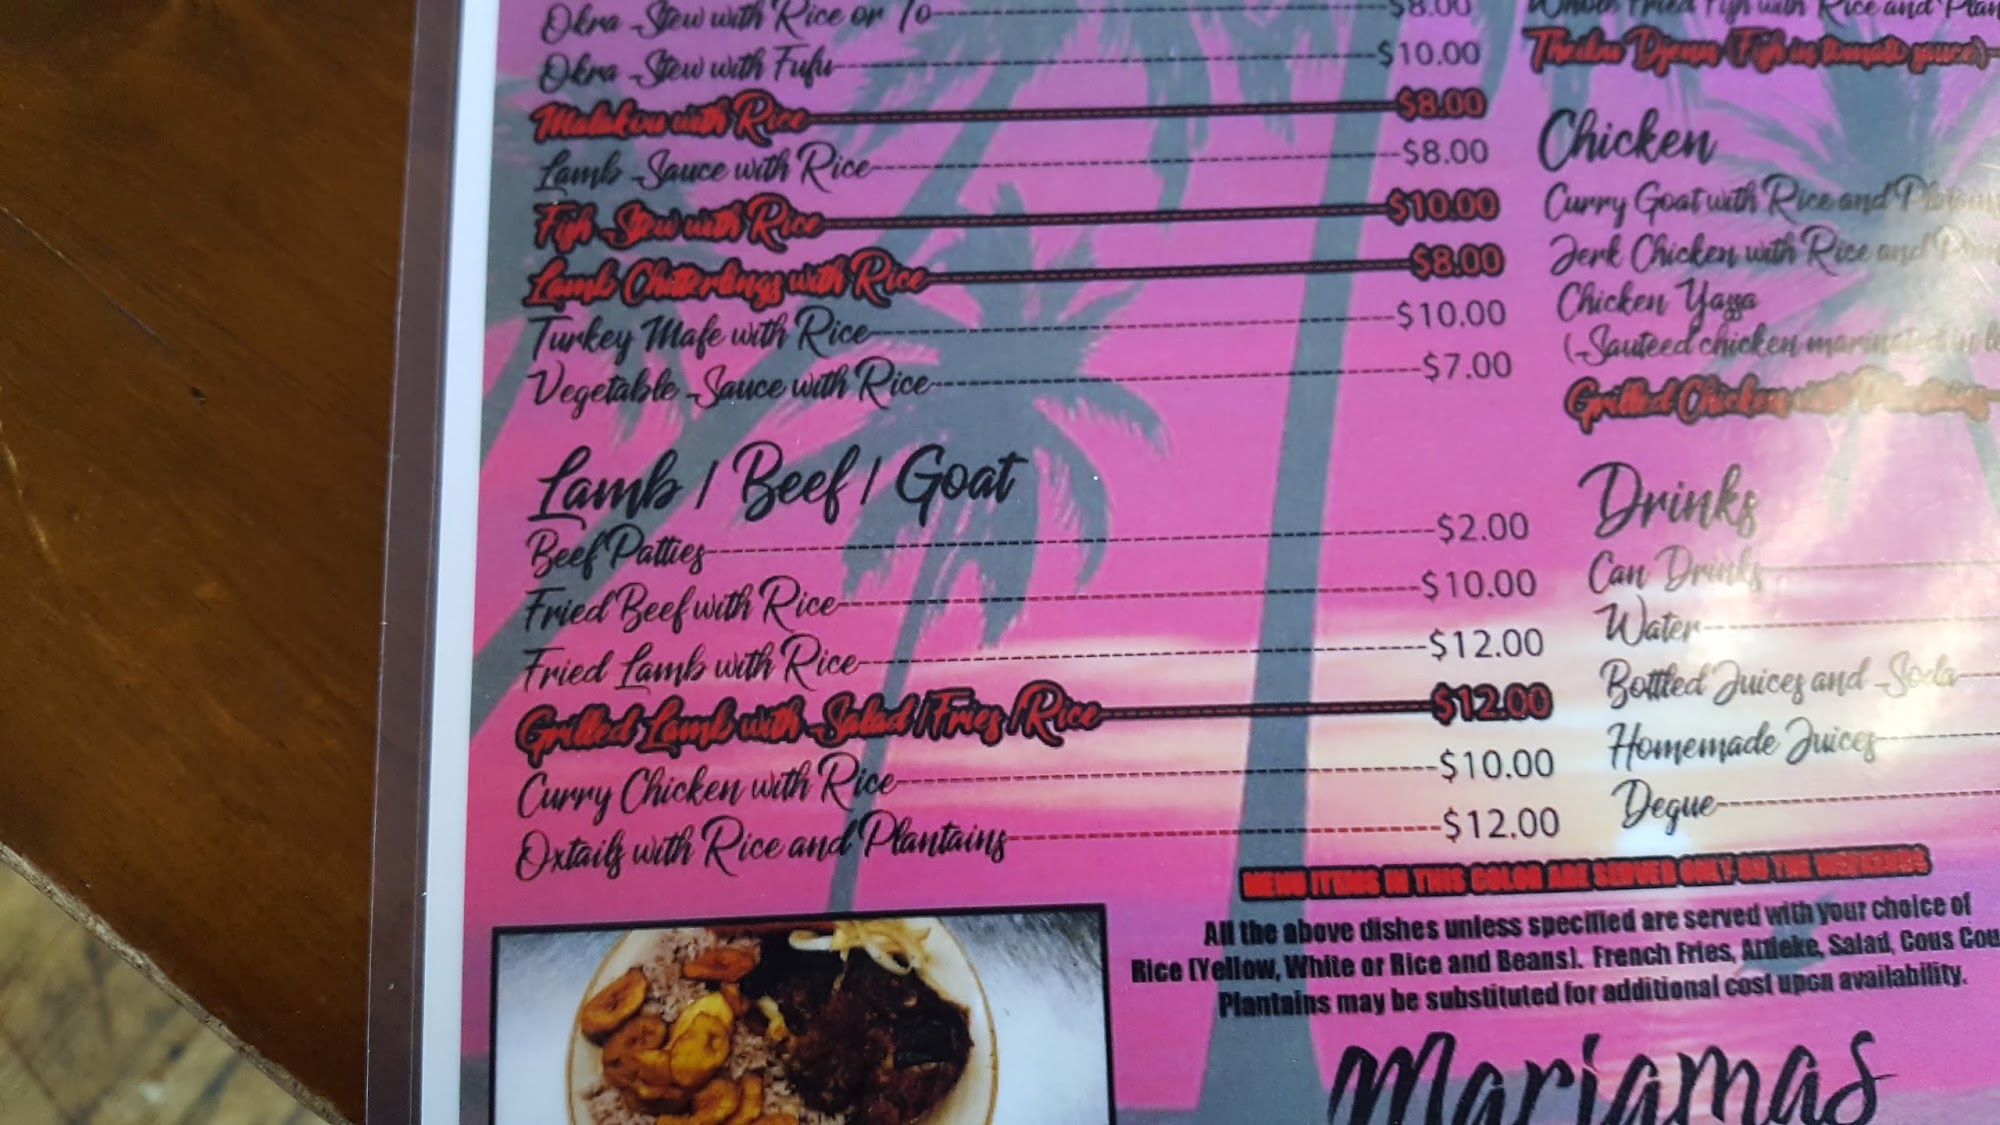 Okra Stew with Rice or To $8.00
Okra Stew with Fufu $10.00
Malakou with Rice $8.00
Lamb Sauce with Rice $8.00
Fish Stew with Rice $10.00
Lamb Chitterlings with Rice $8.00
Turkey Mafe with Rice $10.00
Vegetable Sauce with Rice $7.00
Lamb / Beef / Goat
Beef Patties $2.00
Fried Beef with Rice $10.00
Fried Lamb with Rice $12.00
Grilled Lamb with Salad / Fries / Rice $12.00
Curry Chicken with Rice $10.00
Oxtails with Rice and Plantains $12.00
Whole Fried Fish with Rice and Plan
Djenn (Fish in tomato sauce)
Chicken
Curry Goat with Rice and Plantain
Jerk Chicken with Rice and Plan
Chicken Yassa
(Sauteed chicken marinated in le
Grilled Chicken with Plantains
Drinks
Can Drinks
Water
Bottled Juices and Soda
Homemade Juices
Degue
MENU ITEMS IN THIS COLOR ARE SERVED ONLY ON THE WEEKENDS
All the above dishes unless specified are served with your choice of
Rice (Yellow, White or Rice and Beans). French Fries, Attieke, Salad, Cous Cou
Plantains may be substituted for additional cost upon availability.
Mariamas